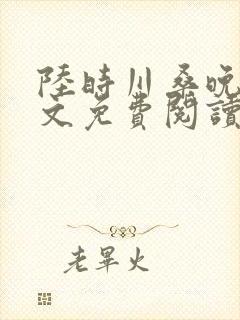 陸時川桑晚
文免費閱讀
老畢火